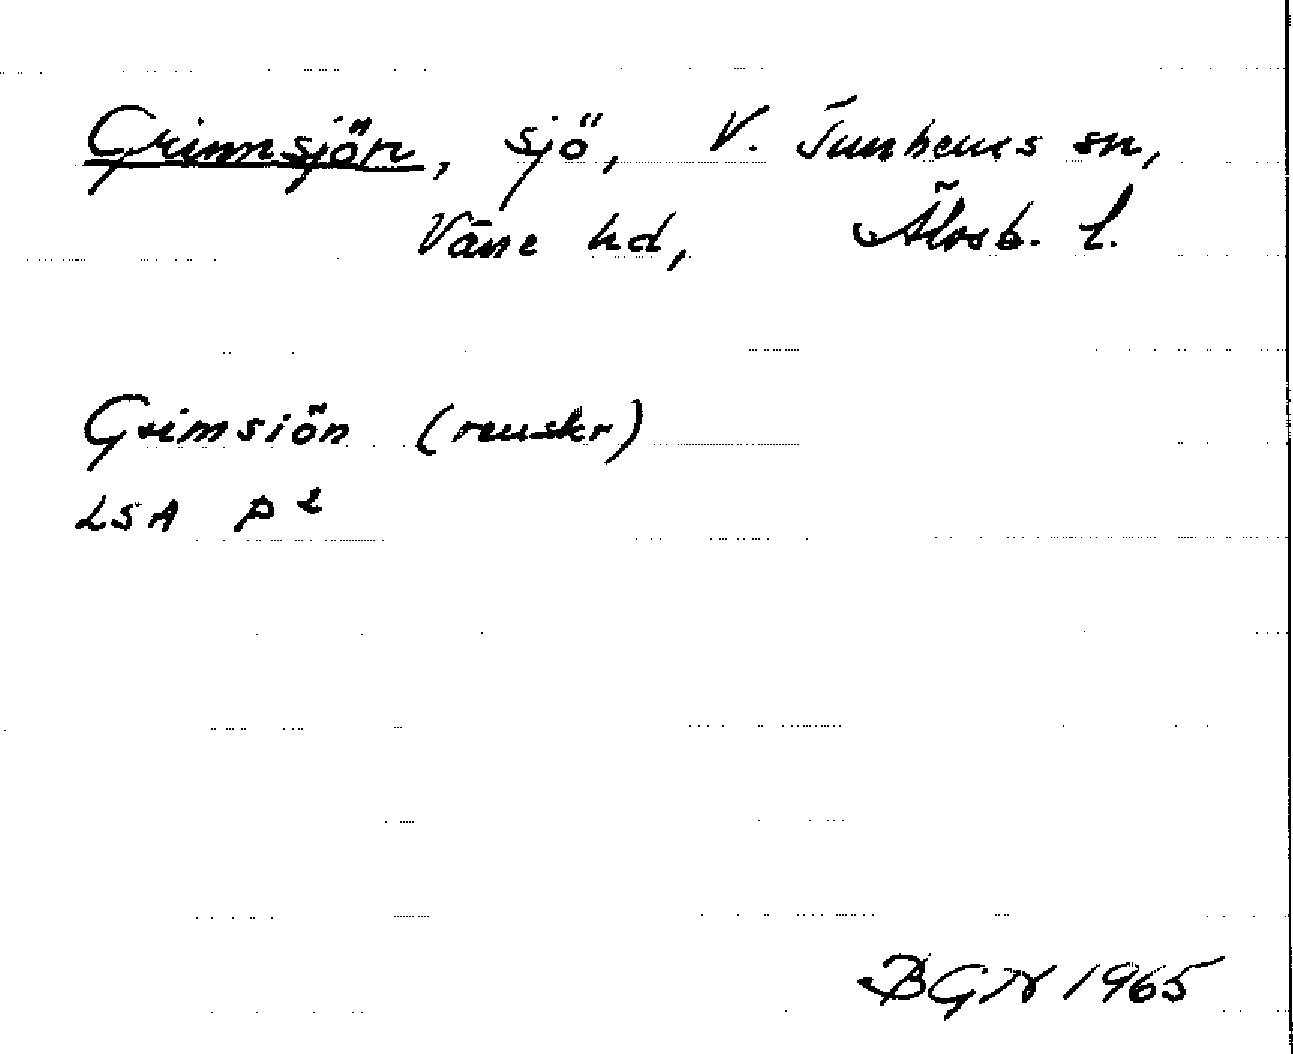 Grinnsjön, sjö, V. Tunhems sn,
Väne hd, Älvsb. l.
Grimsiön (renskr)
LSA P 2
BGN 1965